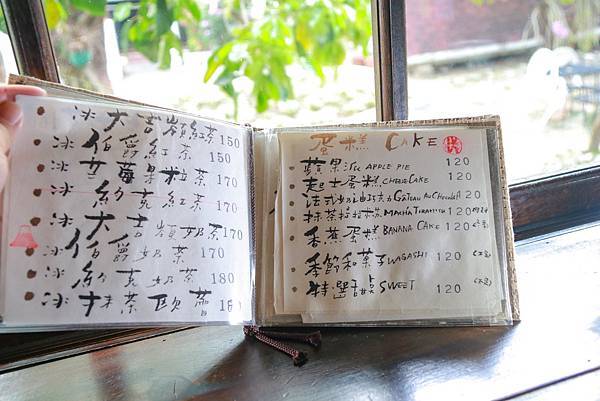 冰大吉嶺紅茶 150
冰伯爵紅茶 150
冰草莓果粒茶 170
冰約克紅茶 170
冰大吉嶺奶茶 170
冰伯爵奶茶 170
冰約克奶茶 180
冰抹茶歐蕾
蛋糕 CAKE
蘋果派 APPLE PIE 120
起士蛋糕 CHEESE CAKE 120
法式 巧克力 GÂTEAU AU CHOCOLAT 120
抹茶提拉米蘇 MACHA TIRAMISU 120
香蕉蛋糕 BANANA CAKE 120
季節和菓子 WAGASHI 120
特選甜點 SWEET 120